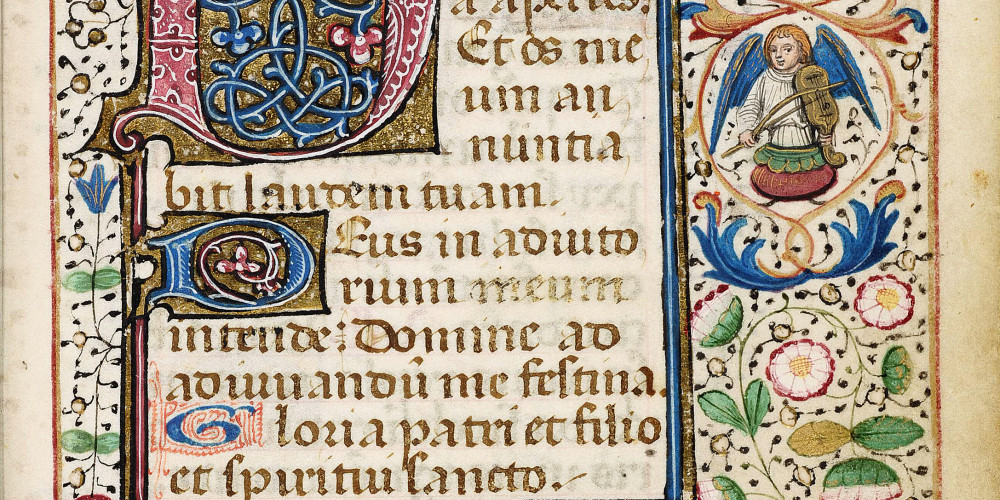 a aperies.
Et os me
um an
nuntia
bit laudem tuam.
Deus in adiuto
rium meum
intende: Domine ad
adiuuandū me festina.
Gloria patri et filio
et spiritui sancto.